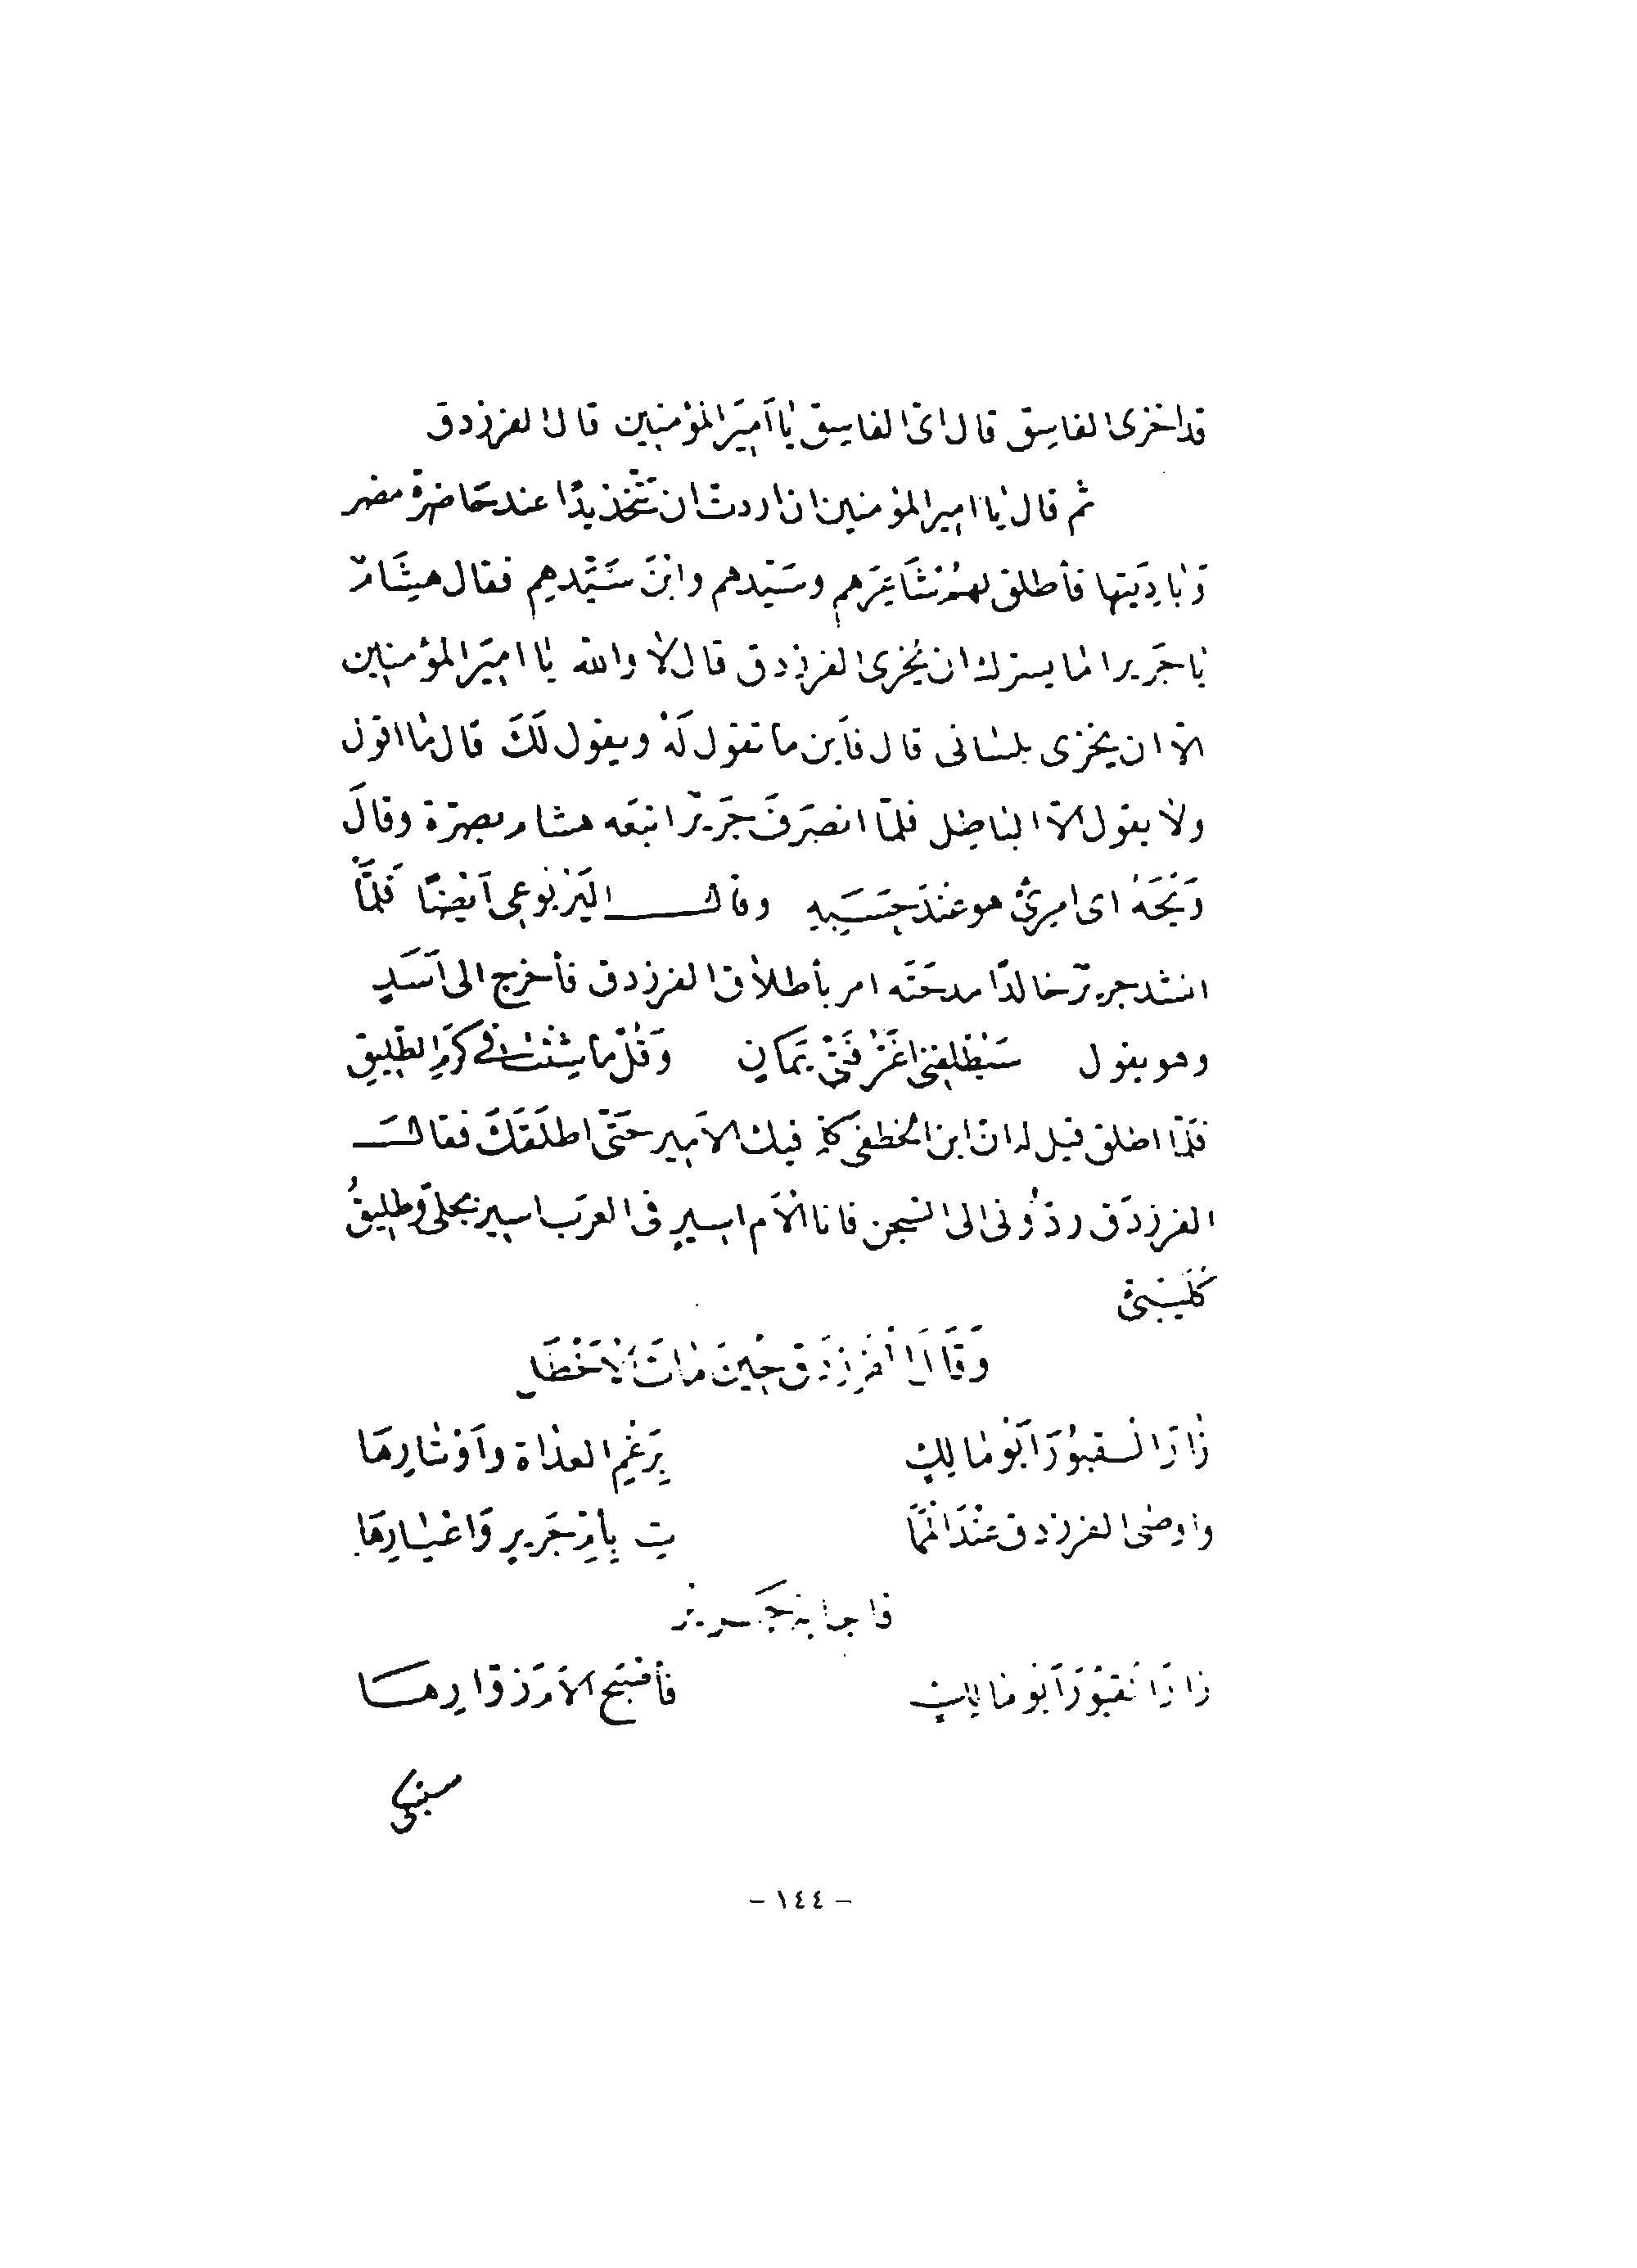 قد اخزى الفاسِق قال اىّ الفاسِق يا اَمِيَر المؤمنِين قال الفرزدق
ثم قال يا امِير المؤمنين ان اردت ان تتّخذ يدًا عند حَاضِرة مضر
وَبادِيَتِها فأطلق لهم شَاعِرَهم وسَيّدهم وابْنَ سَيّدهِم فقال هِشَام
يا جَرير اما يسرّك ان يُخزى الفرزدق قال لا والله يا امِيَر المؤمنِين
الّا ان يخزى بلسانى قال فأَين ما تقول لَهُ ويقول لَكَ قال ما اقول
ولا يقول الّا الباطِل فلمّا انصَرَفَ جَرير اتبعَه هشام بصره وقالَ
وَيْحَهُ اى امرِئ هو عنْدَ حَسَبِهِ وقال اليَرْبُوعِى اَيْضًا فَلَمَّا
انشد جرير خالدًا مدحَتَه امر بأطلاق الفرزدق فأخرج الى اَسَدٍ
وهو يقول سَيُطْلِقنى اغَرّ فَتًى يَمَانٍ وَقلْ ما شِئْتَ فى كَرَمِ الطّلِيقِ
فَلمّا اطلق قيل له انّ ابن الخطفى كلّم فيك الاَمِير حَتّى اطلَقَكَ فقال
الفرزدَق ردّوُنى الى السّجن فانا اَلْاَم اسِيرٍ فى العرَب اسِير بجلىّ وطلِيقُ
كُلَيْبىّ
وَقَالَ الْفَرَزدَق حِينَ مَاتَ الْاَخْطَل
زَارَ القبوُرَ اَبُو مالِكٍ بِرَغْمِ العداة واَوْتارِهَا
واوصى الفرزدق عنْدَ الْمَمَا تِ بِأُمّ جَريرٍ وَاعْيَارِهَا
فاجابهُ جَرير
زارَ القبوُرَ اَبُو مالِكٍ فأقبَح اَلْاَمَ زوّارِها
سبتنى
- ١٤٤ -